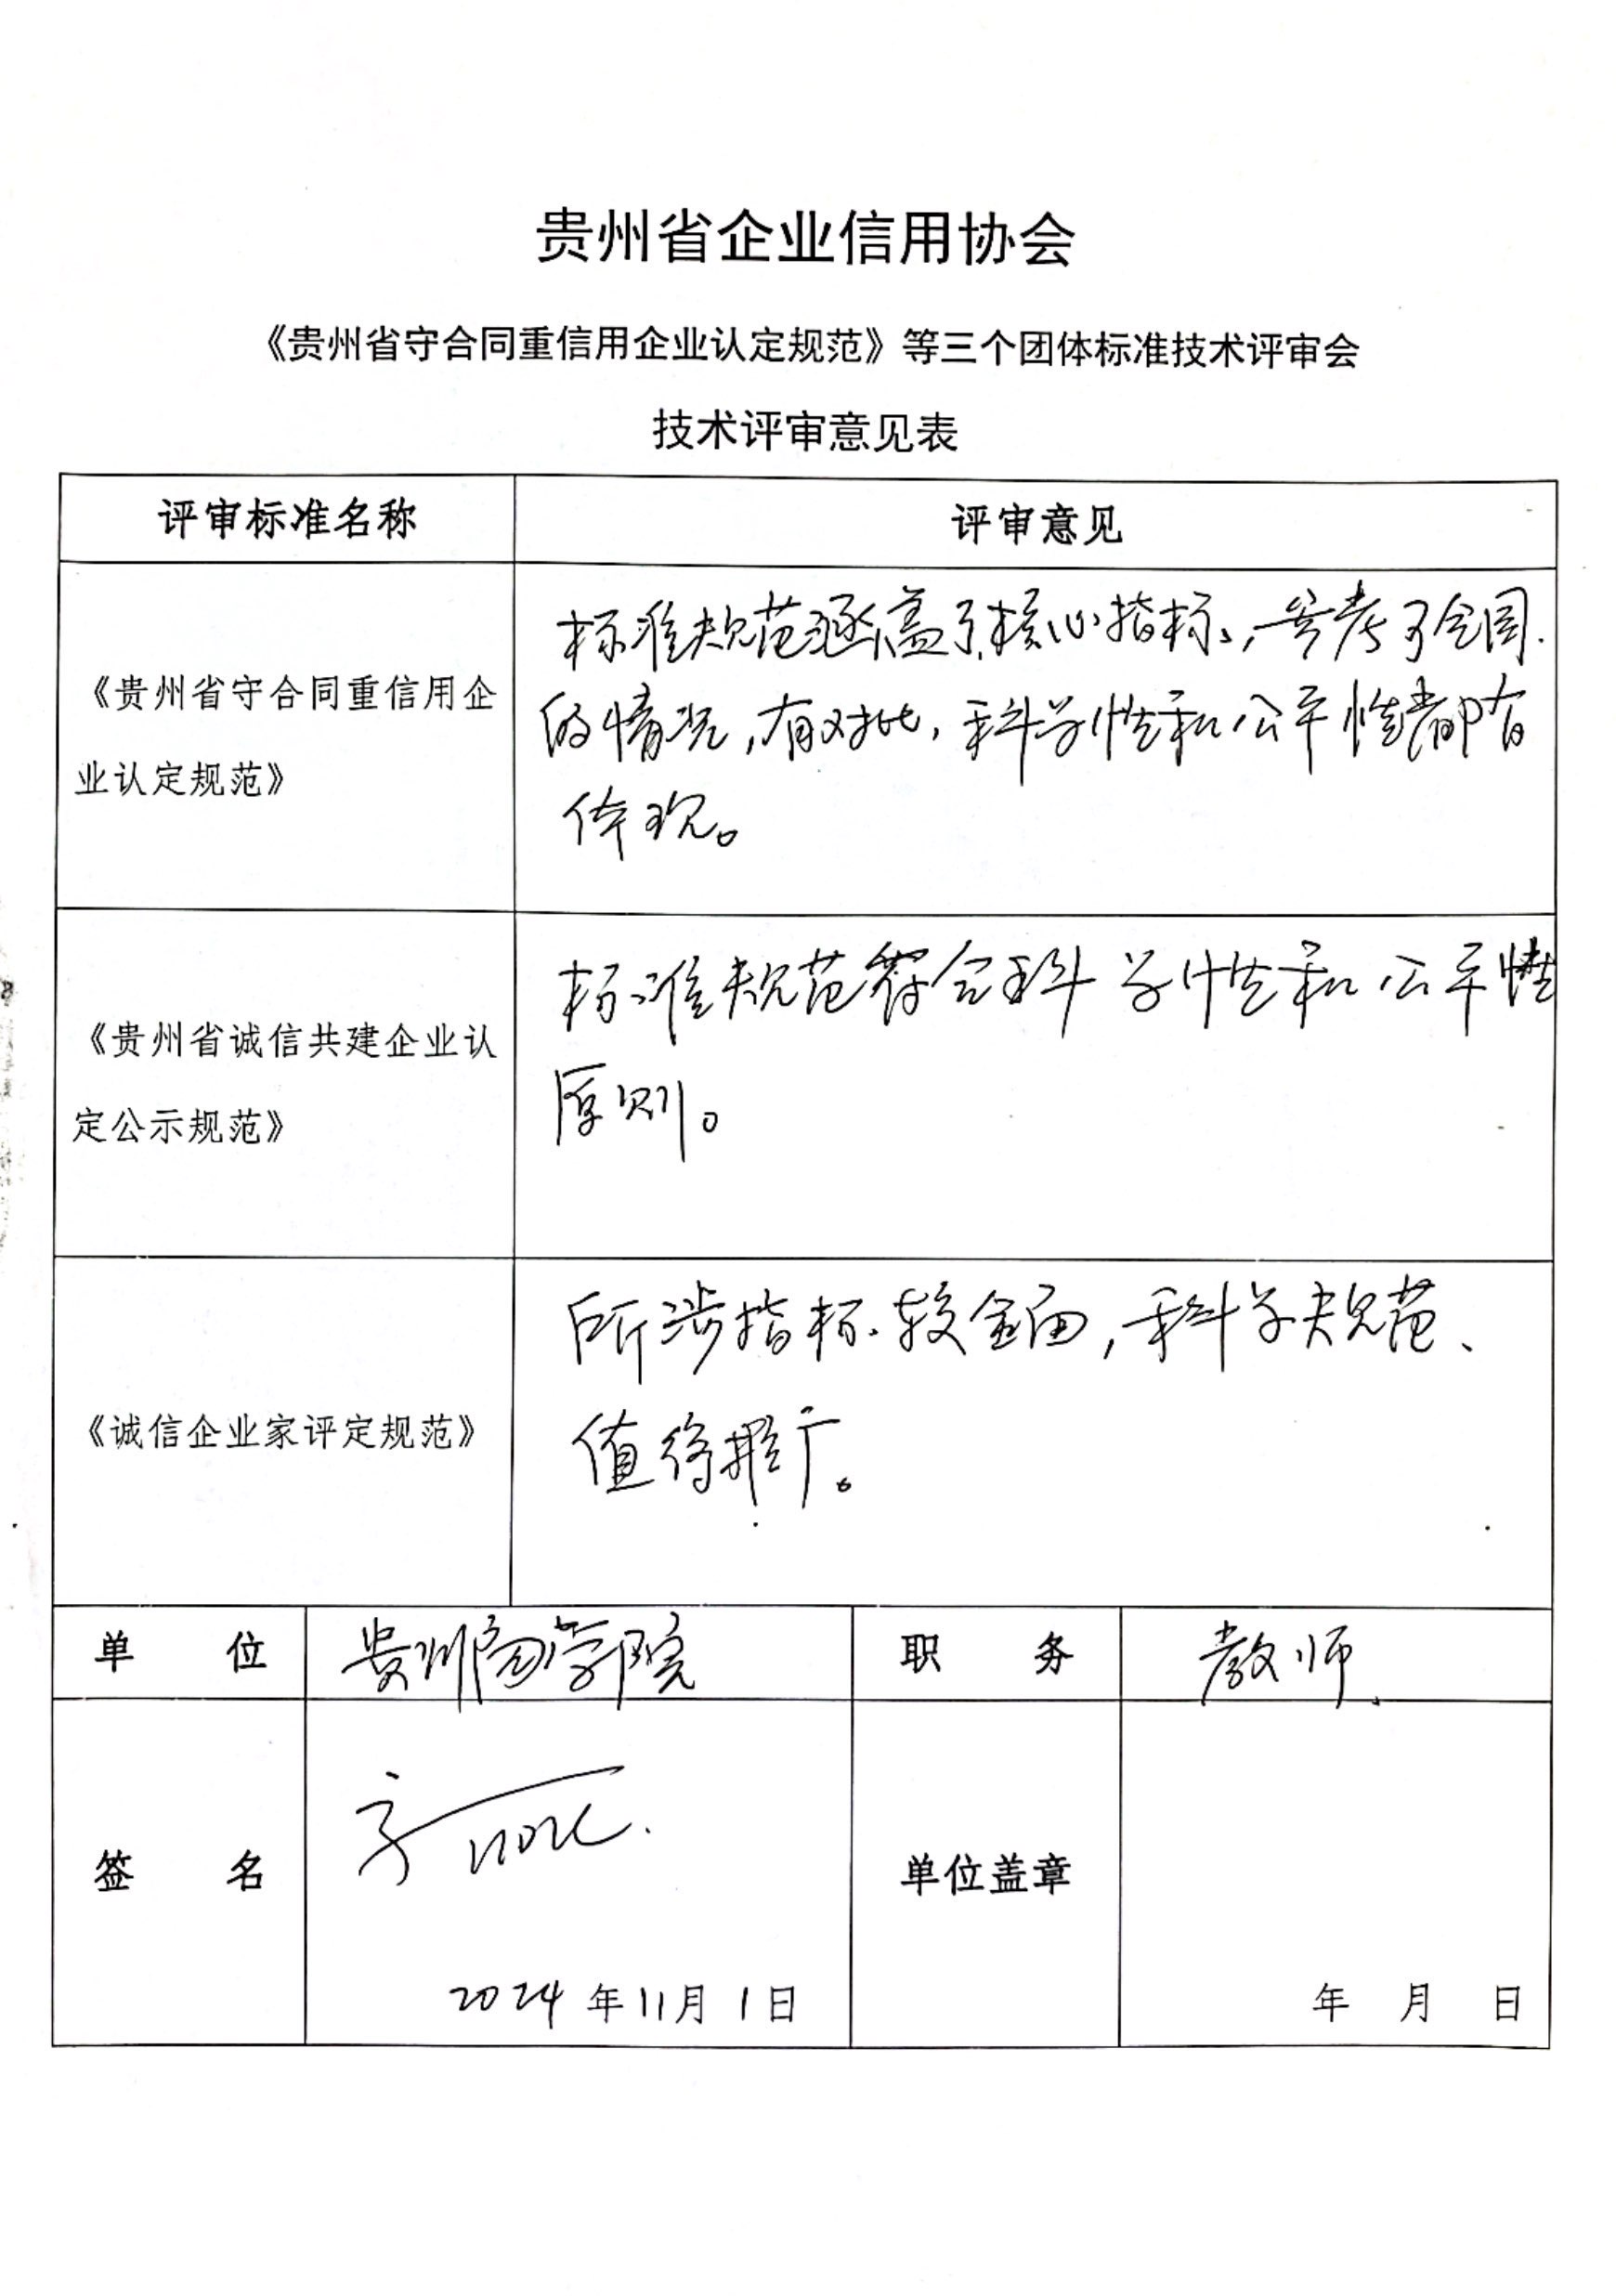 贵州省企业信用协会
《贵州省守合同重信用企业认定规范》等三个团体标准技术评审会
技术评审意见表
评审标准名称
评审意见
《贵州省守合同重信用企
业认定规范》
标准规范涵盖了核心指标,参考了全国
的情况,有对比,科学性和公平性都有
体现。
《贵州省诚信共建企业认
定公示规范》
标准规范符合科学性和公平性
原则。
《诚信企业家评定规范》
所涉指标较全面,科学规范、
值得推广。
单 位
贵州商学院
职 务
教师
签 名
2024年11月1日
单位盖章
年 月 日